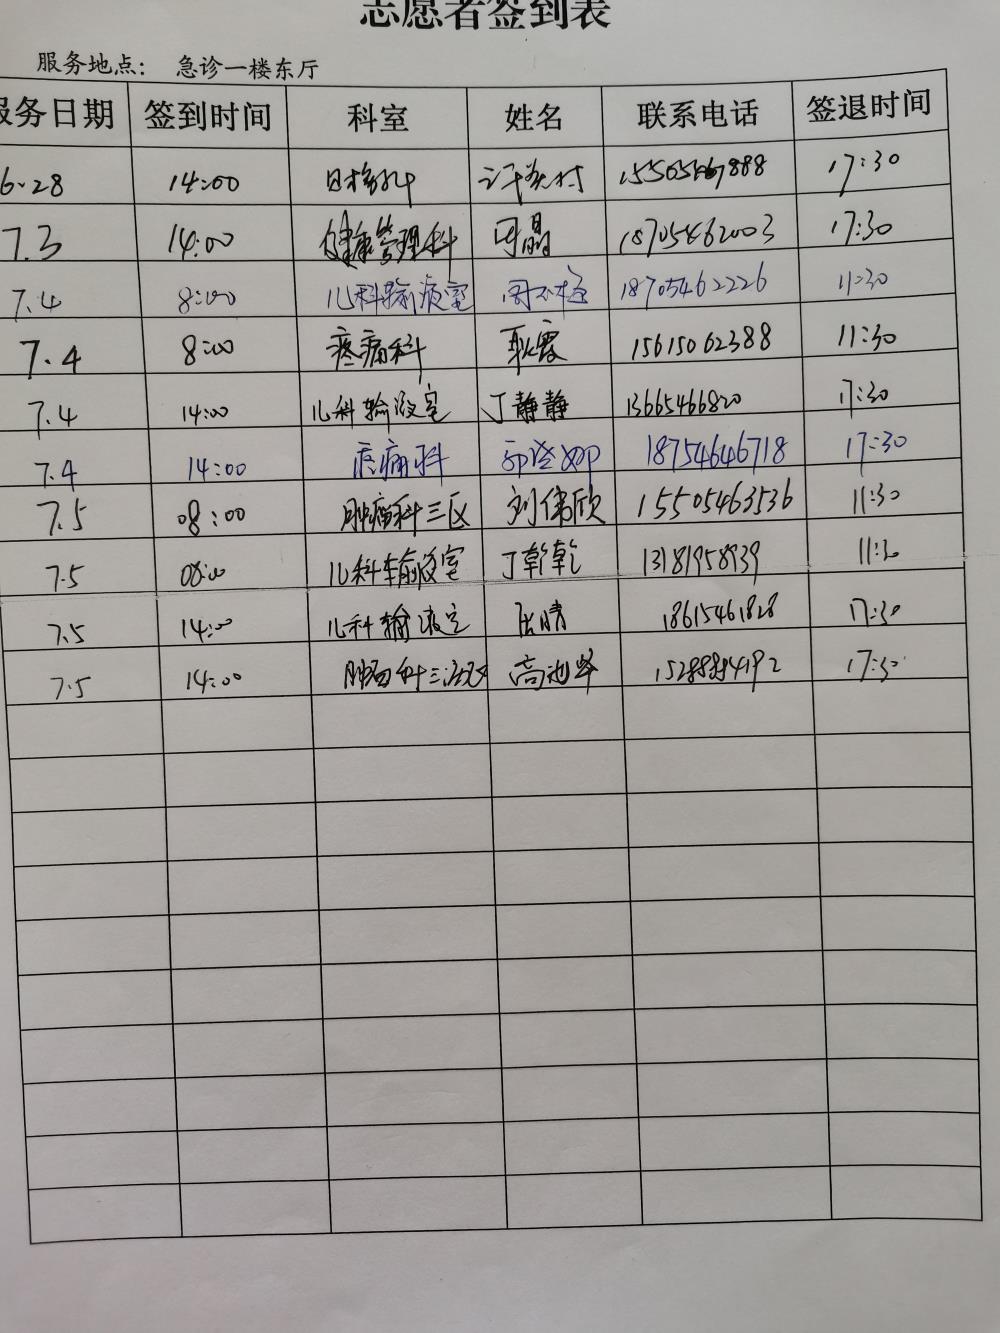 志愿者签到表
服务地点： 急诊一楼东厅
服务日期 签到时间 科室 姓名 联系电话 签退时间
6.28 14:00 17:30
7.3 14:00 健康管理科 晶 18705462003 17:30
7.4 8:00 儿科输液室 18705462226 11:30
7.4 8:00 疼痛科 耿霞 15615062388 11:30
7.4 14:00 儿科输液室 丁静静 13665466820 17:30
7.4 14:00 疼痛科 18754646718 17:30
7.5 08:00 肿瘤科三区 刘伟欣 15505463536 11:30
7.5 08:00 儿科输液室 丁乾乾 13181958939 11:30
7.5 14:00 儿科输液室 张晴 18615461828 17:30
7.5 14:00 17:30